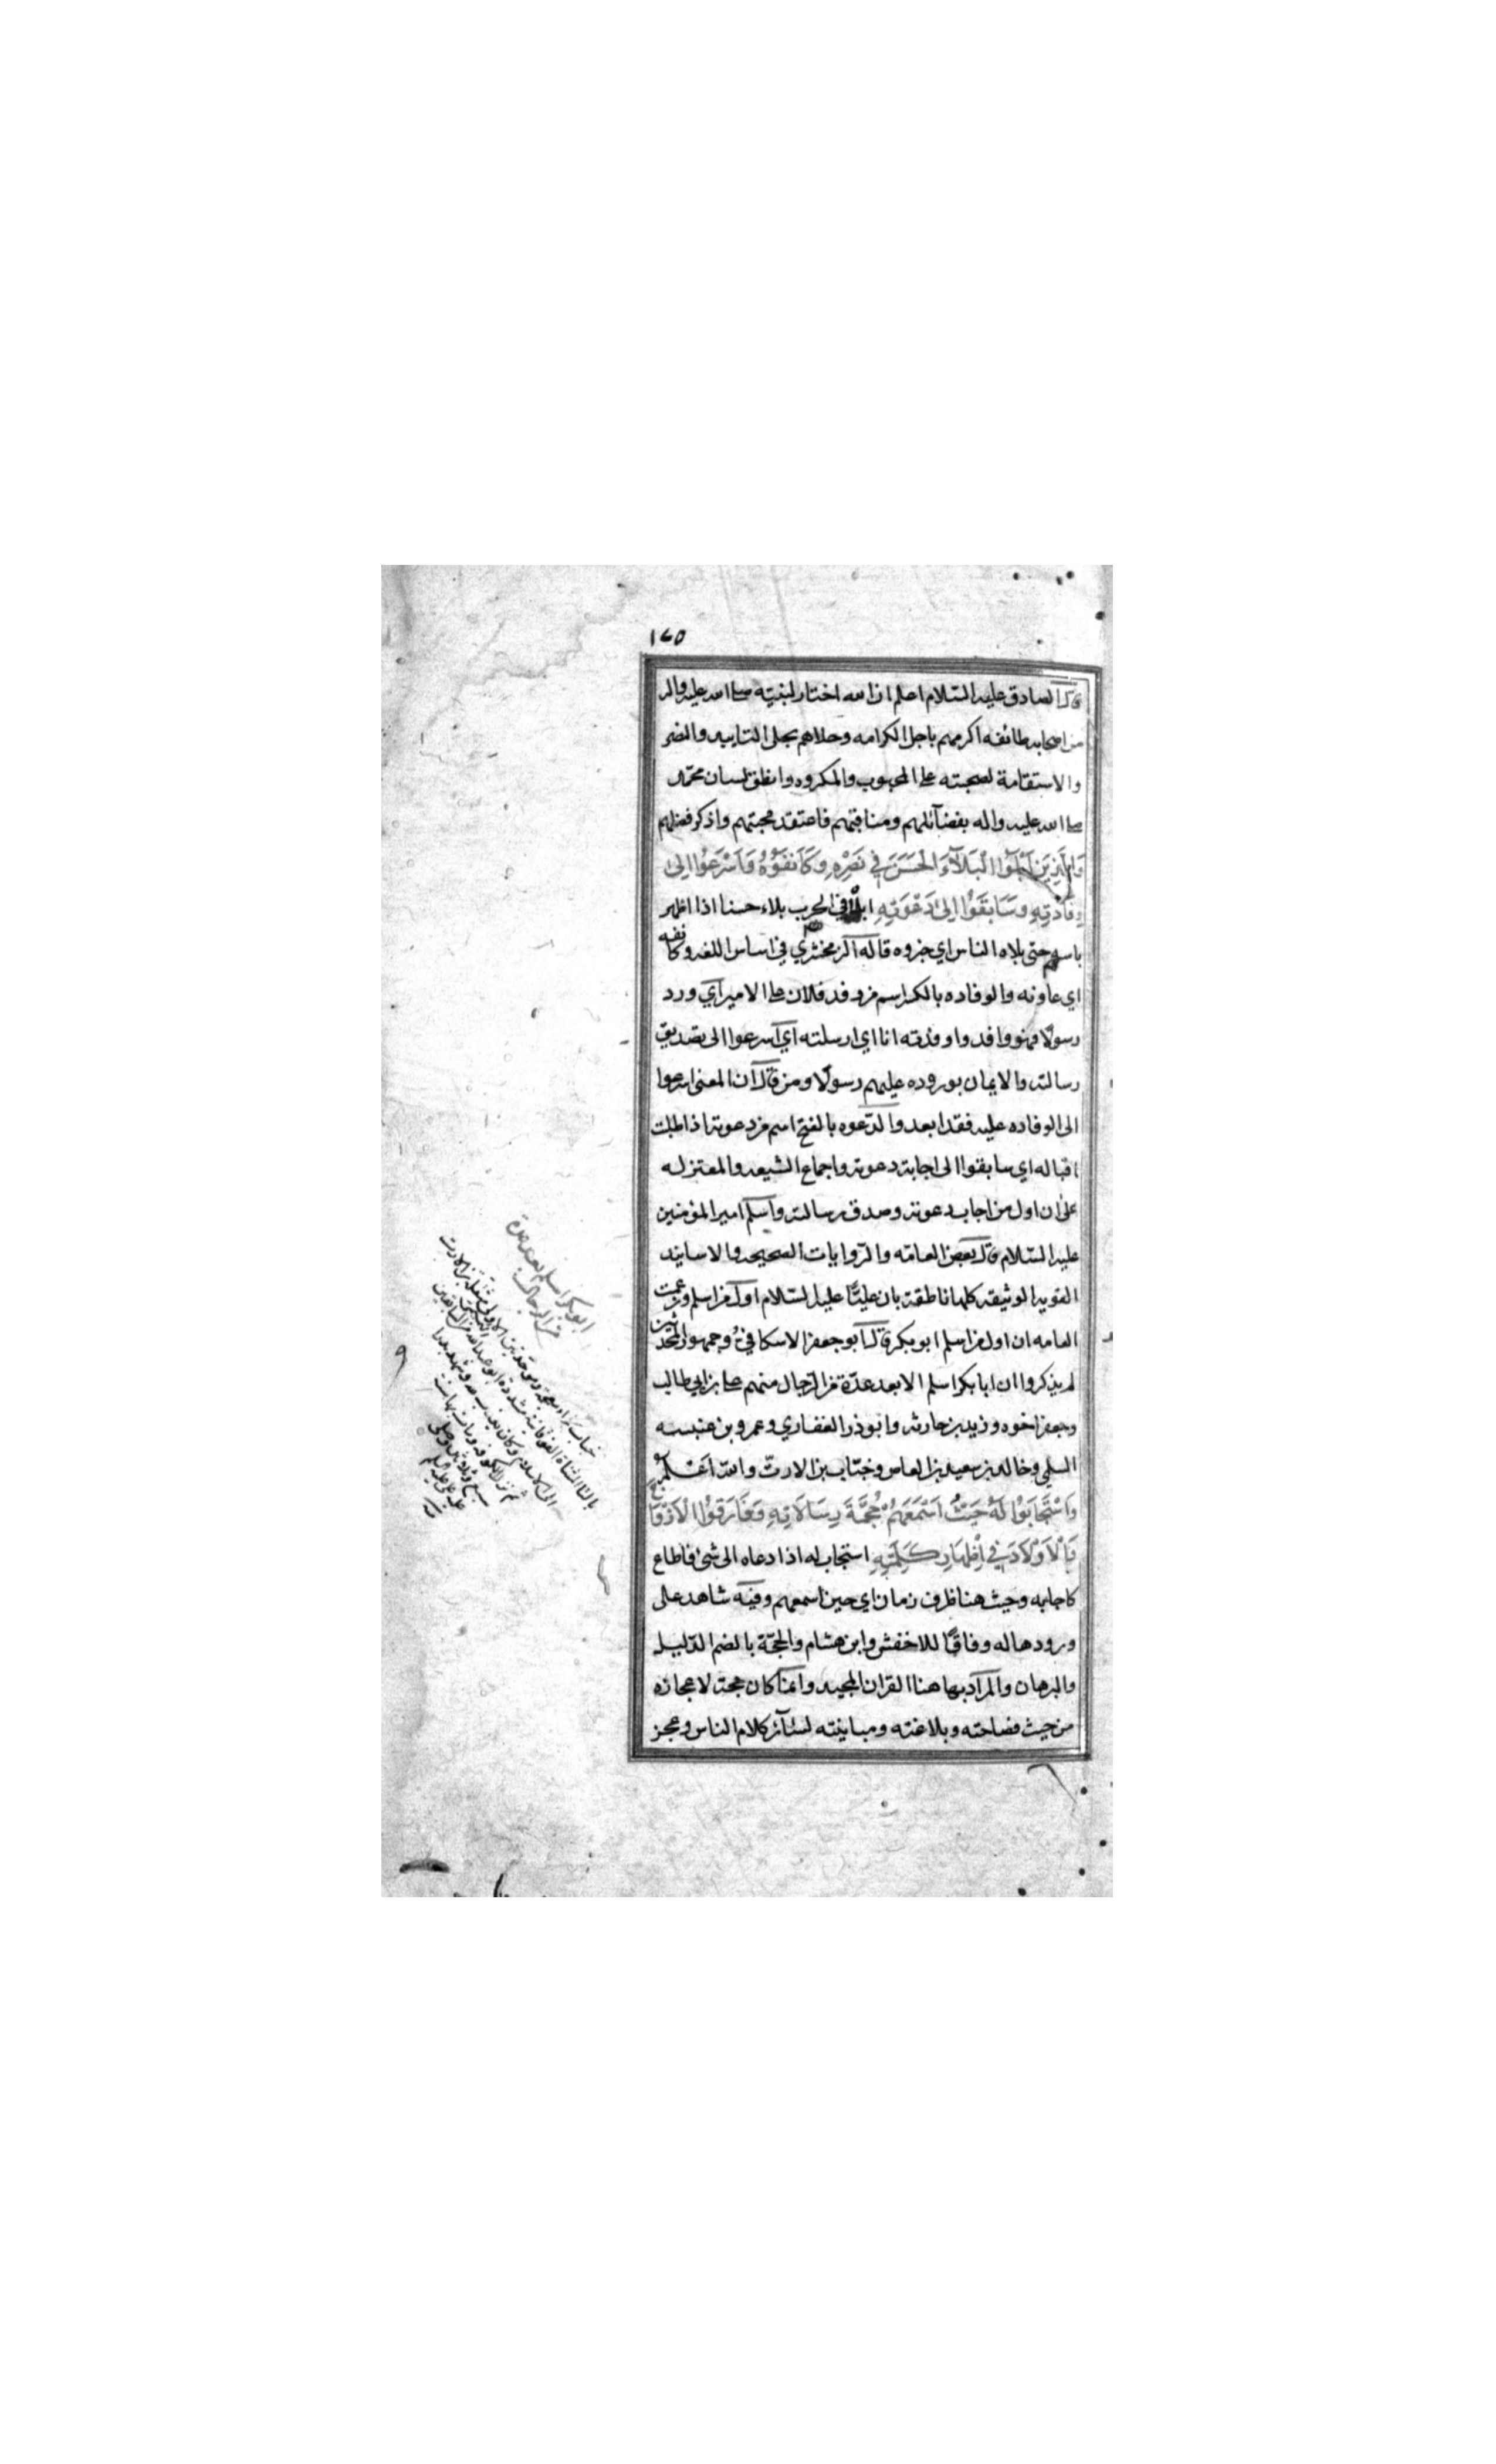 ١٢٥
قال الصادق عليه السّلام اعلم ان الله اختار لنبيه صلى الله عليه واله
من اصحابه طائفه اكرمهم باجل الكرامه وحلاهم بحلى التاييد والنصر
والاستقامة لصحبته على المحبوب والمكروه وانطق لسان محمّد
صلى الله عليه واله بفضآئلهم ومناقبهم فاعتقد محبتهم واذكر فضلهم
وَالَّذِينَ اَبْلَوُا الْبَلَآءَ الْحَسَنَ فِي نَصْرِهِ وَكَانَفُوْهُ وَاَسْرَعُوا اِلىٰ
وِفَادَتِهِ وَسَابَقُوا اِلىٰ دَعْوَتِهِ ابلى في الحرب بلاء حسنا اذا اظهر
باسه حتى بلاه الناس اي خبروه قاله الزمخشري في اساس اللغه وكانفه
اي عاونه والوفاده بالكسر اسم من وفد فلان على الامير اي ورد
رسولًا فهو وافد واوفدته انا اي ارسلته اي اسرعوا الى تصديق
رسالته والايمان بوروده عليهم رسولًا ومن قال ان المعنى اسرعوا
الى الوفاده عليه فقد ابعد والدّعوه بالفتح اسم من دعوته اذا طلبت
اقباله اي سابقوا الى اجابة دعوته واجماع الشيعه والمعتزله
على ان اول من اجاب دعوته وصدق رسالته واسلم امير المؤمنين
عليه السّلام قال بعض العامّه والرّوايات الصحيحه والاسانيد
القويه الوثيقه كلها ناطقة بان عليًّا عليه السّلام اول من اسلم وزعمت
العامه ان اول من اسلم ابو بكر قال ابو جعفر الاسكافي وجمهور المحدثين
لم يذكروا ان ابا بكر اسلم الا بعد عدّة من الرّجال منهم علي بن ابي طالب
وجعفر اخوه وزيد بن حارثه وابو ذر الغفاري وعمرو بن عنبسه
السلمي وخالد بن سعيد بن العاص وخبّاب بن الارتّ والله اَعْلم
وَاسْتَجَابُوا لَهُ حَيْثُ اَسْمَعَهُمْ حُجَّةَ رِسَالَاتِهِ وَفَارَقُوا الْاَزْوَاجَ
وَالْاَوْلَادَ فِي اِظْهَارِ كَلِمَتِهِ استجاب له اذا دعاه الى شئ فاطاع
كاجابه وحيث هنا ظرف زمان اي حين اسمعهم وفيه شاهد على
ورودها له وفاقًا للاخفش وابن هشام والحجّة بالضم الدّليل
والبرهان والمراد بها هنا القران المجيد وانما كان حجة لاعجازه
من حيث فصاحته وبلاغته ومباينته لسآئر كلام الناس وعجز
ابو بكر اسلم بعد عدة
من الرجال